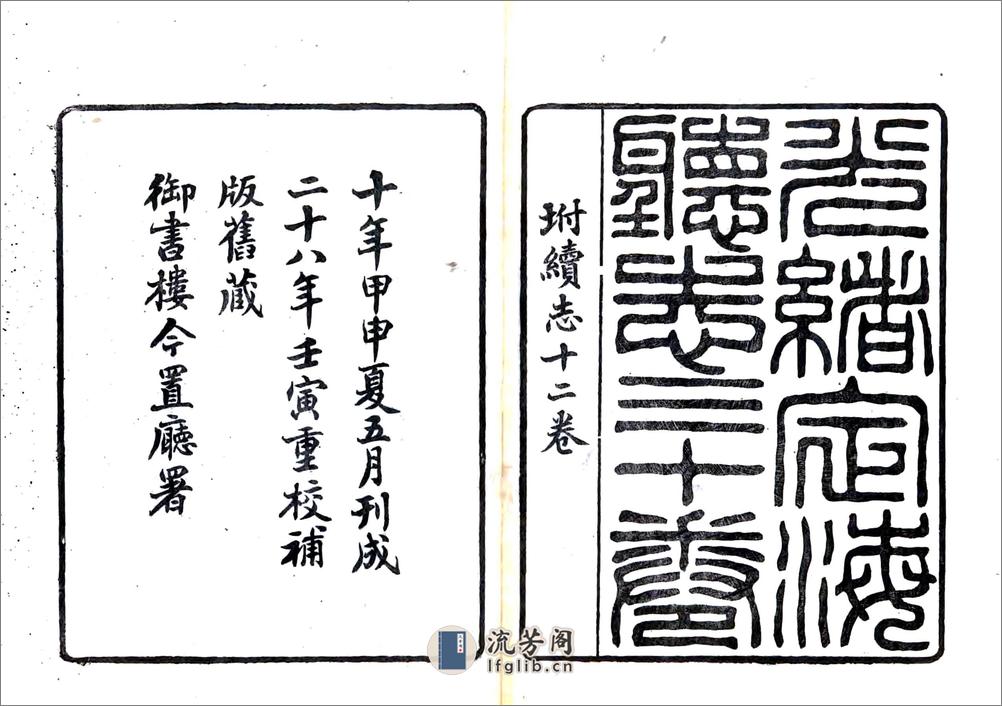 光緒定海
聽志三十卷
坿續志十二卷
十年甲申夏五月刊成
二十八年壬寅重校補
版舊藏
御書樓今置廳署
流芳阁
lfglib.cn